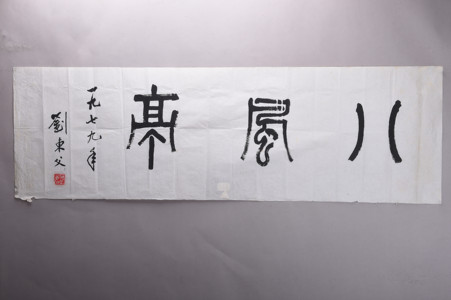 八風亭
一九七九年
劉東父